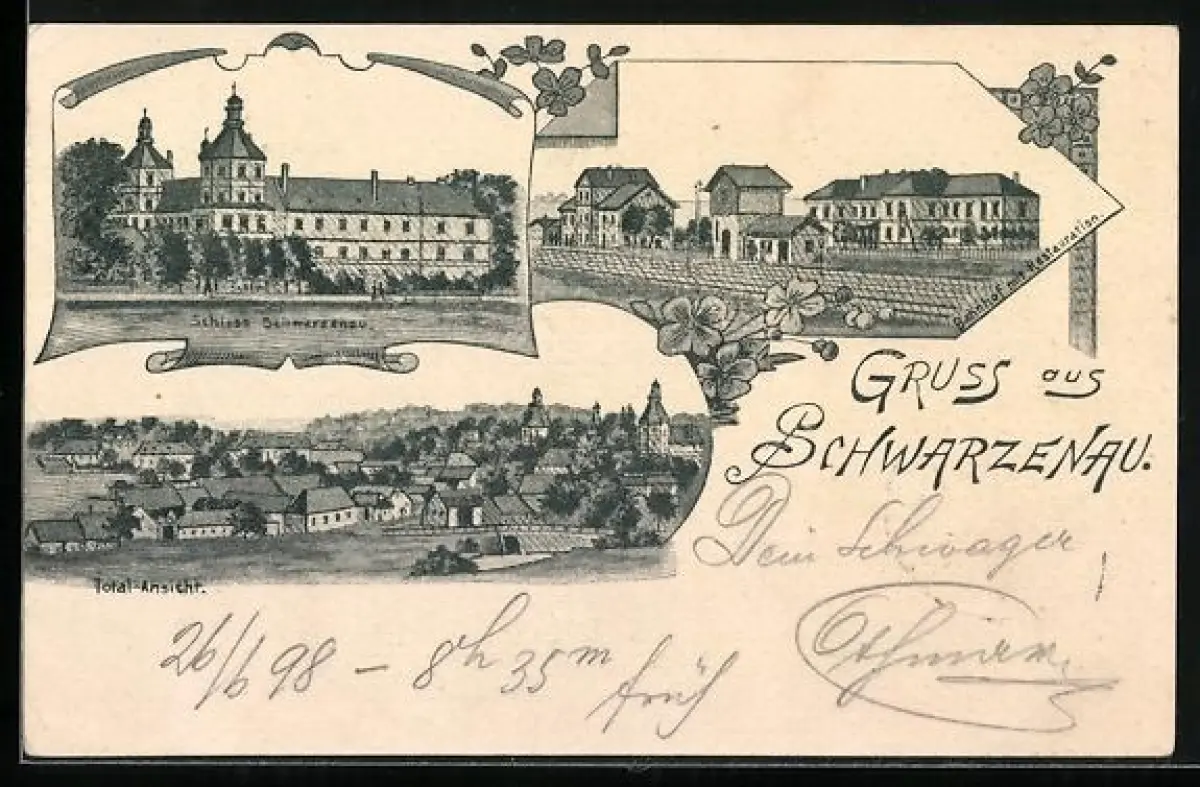 Schloss Schwarzenau.
Bahnhof mit Restauration
GRUSS aus
SCHWARZENAU.
Dein Schwager
Othmar
Total-Ansicht.
26/6 98 – 8h 35m
früh